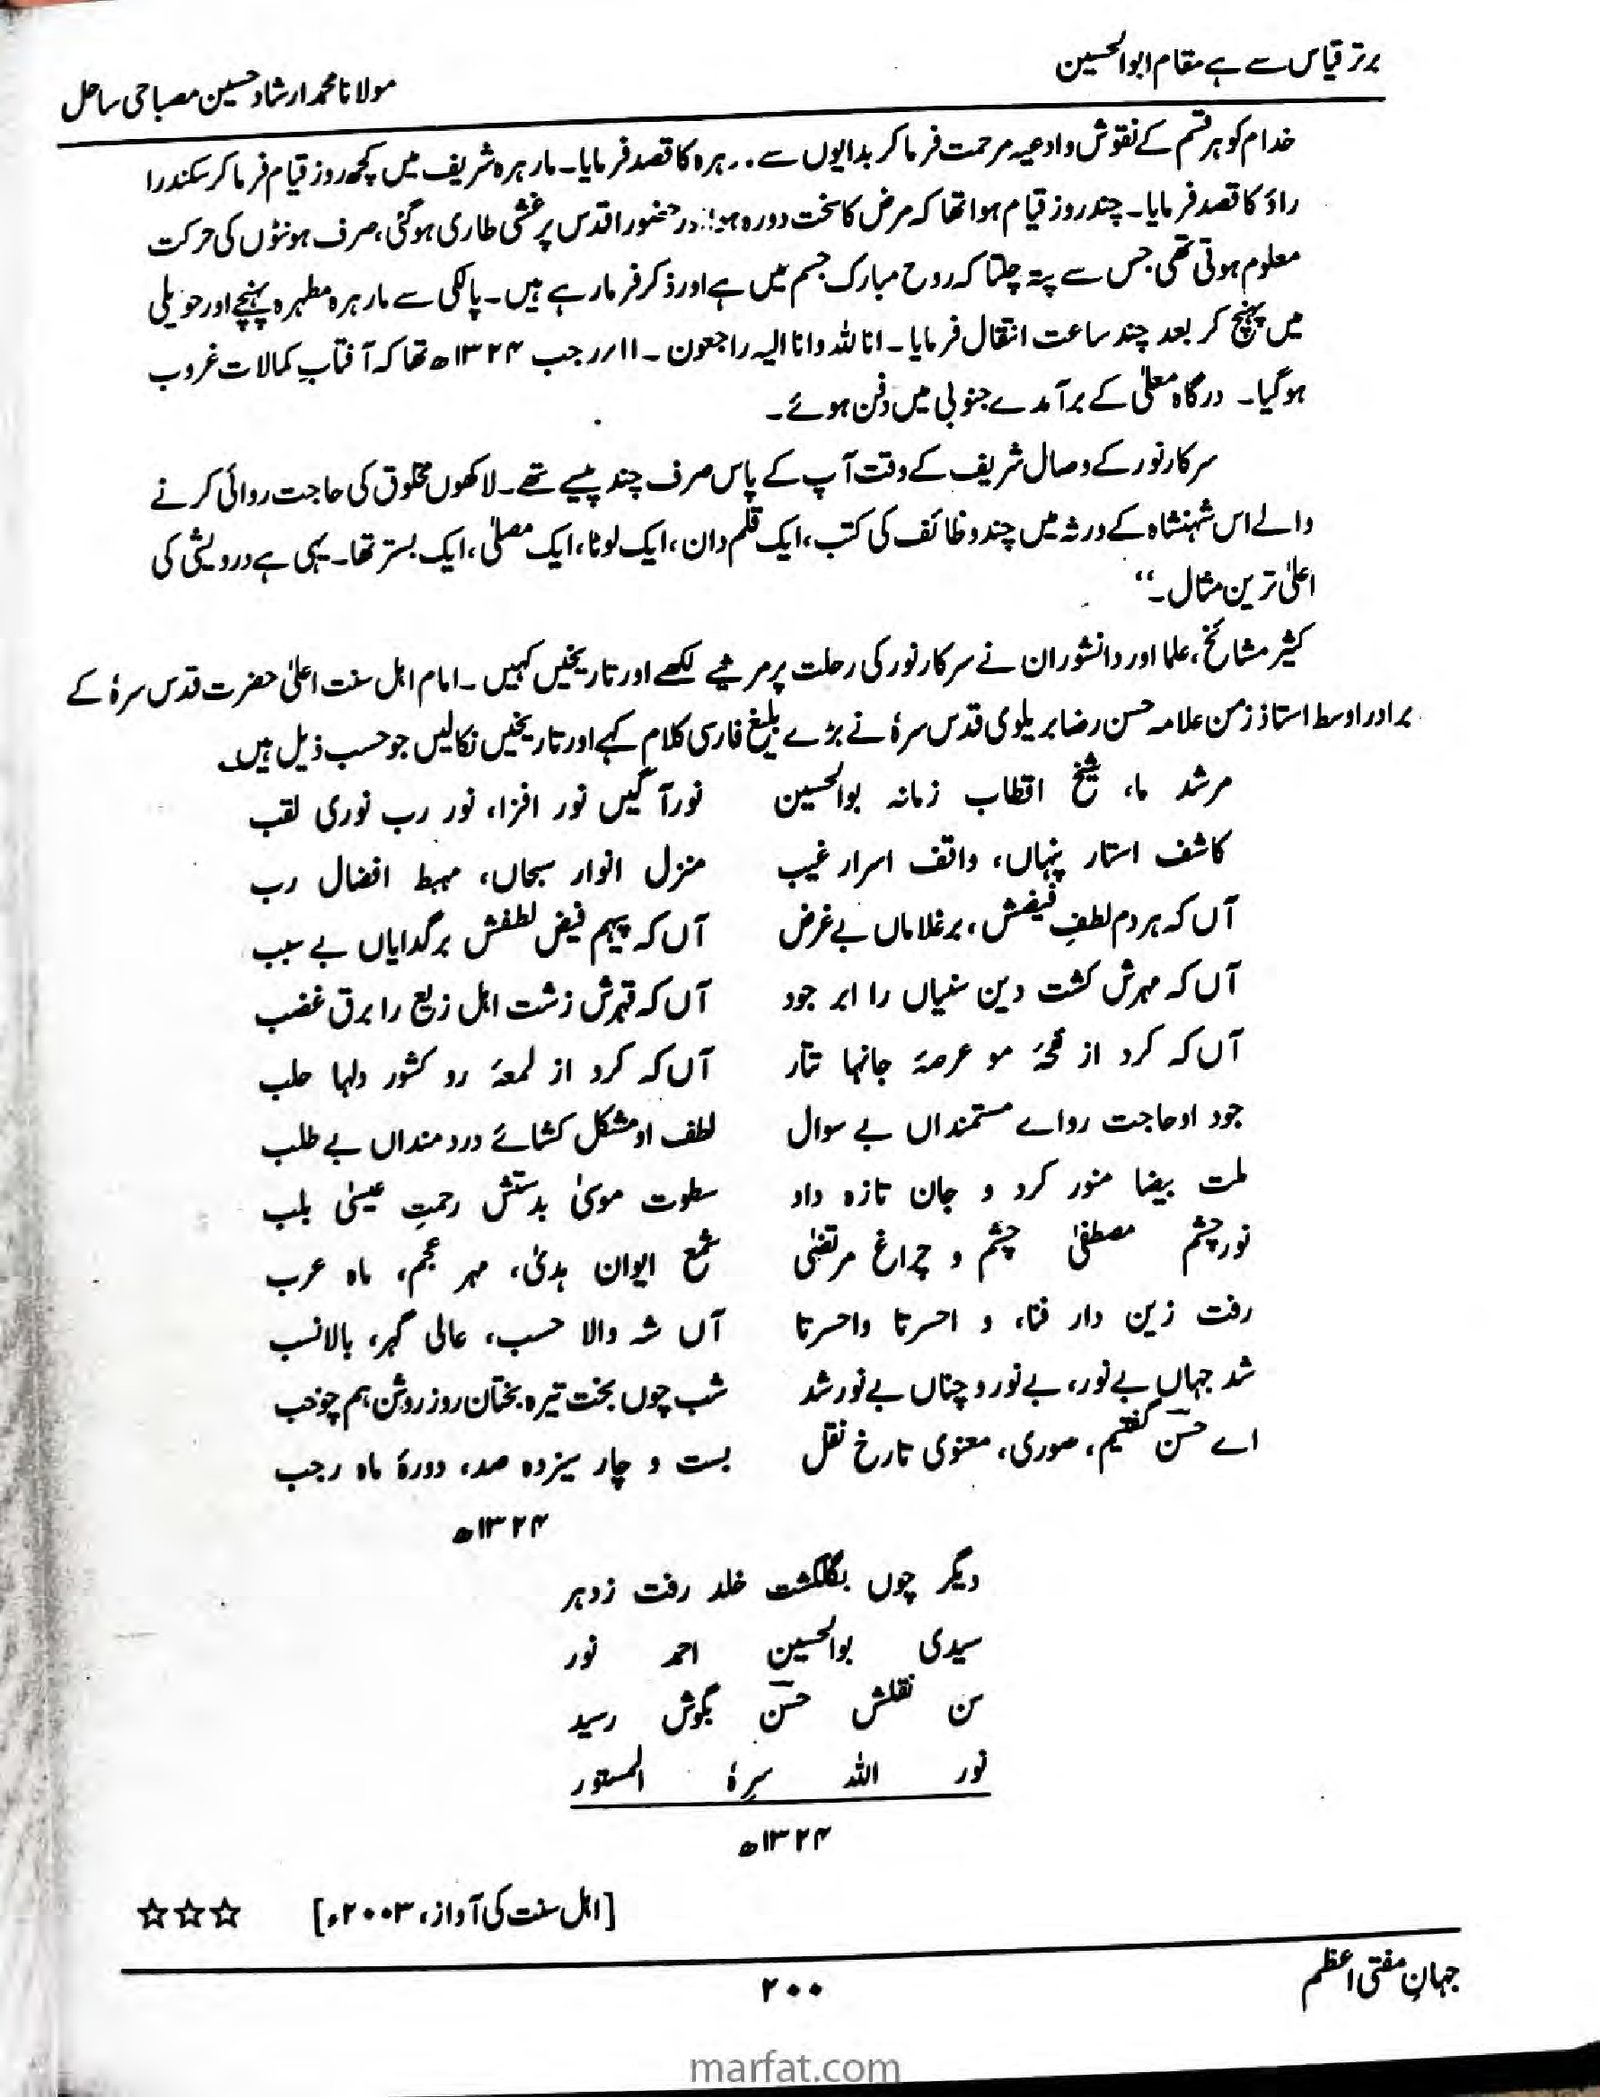 برتر قیاس سے ہے مقام ابوالحسین
مولانا محمد ارشاد حسین مصباحی ساحل
خدام کو ہر قسم کے نقوش وادعیہ مرحمت فرما کر بدایوں سے ..رہرہ کا قصد فرمایا۔ مارہرہ شریف میں کچھ روز قیام فرما کر سکندرا
راؤ کا قصد فرمایا۔ چند روز قیام ہوا تھا کہ مرض کا سخت دورہ ہوا در حضور اقدس پر غشی طاری ہوگئی، صرف ہونٹوں کی حرکت
معلوم ہوتی تھی جس سے پتہ چلتا کہ روح مبارک جسم میں ہے اور ذکر فرمارہے ہیں۔ پالکی سے مارہرہ مطہرہ پہنچے اور حویلی
میں پہنچ کر بعد چند ساعت انتقال فرمایا۔ انا للہ وانا الیہ راجعون ۔۱۱؍رجب ۱۳۲۴ھ تھا کہ آفتابِ کمالات غروب
ہوگیا۔ درگاہ معلیٰ کے برآمدے جنوبی میں دفن ہوئے۔
سرکار نور کے وصال شریف کے وقت آپ کے پاس صرف چند پیسے تھے۔ لاکھوں مخلوق کی حاجت روائی کرنے
والے اس شہنشاہ کے ورثہ میں چند وظائف کی کتب، ایک قلم دان، ایک لوٹا، ایک مصلیٰ، ایک بستر تھا۔ یہی ہے درویشی کی
اعلیٰ ترین مثال۔‘‘
کثیر مشائخ، علما اور دانشوران نے سرکار نور کی رحلت پر مرثیے لکھے اور تاریخیں کہیں۔ امام اہل سنت اعلیٰ حضرت قدس سرہٗ کے
برادر اوسط استاذ زمن علامہ حسن رضا بریلوی قدس سرہٗ نے بڑے بلیغ فارسی کلام کہے اور تاریخیں نکالیں جو حسب ذیل ہیں۔
مرشد ما، شیخ اقطاب زمانہ بوالحسین نور آگیں نور افزا، نور رب نوری لقب
کاشف استار پنہاں، واقف اسرار غیب منزل انوار سبحاں، مہبط افضال رب
آں کہ ہر دم لطفِ فیضش، بر غلاماں بے غرض آں کہ پیہم فیض لطفش بر گدایاں بے سبب
آں کہ مہرش کشت دین سنیاں را ابر جود آں کہ قہرش زشت اہل زیغ را برق غضب
آں کہ کرد از نفحۂ مو عرصۂ جانہا تتار آں کہ کرد از لمعۂ رو کشور دلہا حلب
جود او حاجت رواے مستمنداں بے سوال لطف او مشکل کشائے دردمنداں بے طلب
ملت بیضا منور کرد و جان تازہ داد سطوت موسیٰ بدستش رحمتِ عیسیٰ بلب
نور چشم مصطفیٰ چشم و چراغ مرتضیٰ شمع ایوان ہدیٰ، مہر عجم، ماہ عرب
رفت زین دار فنا، و احسرتا واحسرتا آں شہ والا حسب، عالی گہر، بالا نسب
شد جہاں بے نور، بے نور و چناں بے نور شد شب چوں بخت تیرہ بختان روز روشن ہم چوشب
اے حسنؔ گفتیم، صوری، معنوی تاریخ نقل بست و چار سیزدہ صد، دورۂ ماہ رجب
۱۳۲۴ھ
دیگر چوں بگلگشت خلد رفت زدہر
سیدی بوالحسین احمد نور
سن نقلش حسنؔ بگوش رسید
نور اللہ سرہٗ المستور
۱۳۲۴ھ
[اہل سنت کی آواز، ۲۰۰۳ء] ☆☆☆
جہانِ مفتی اعظم
۲۰۰
marfat.com